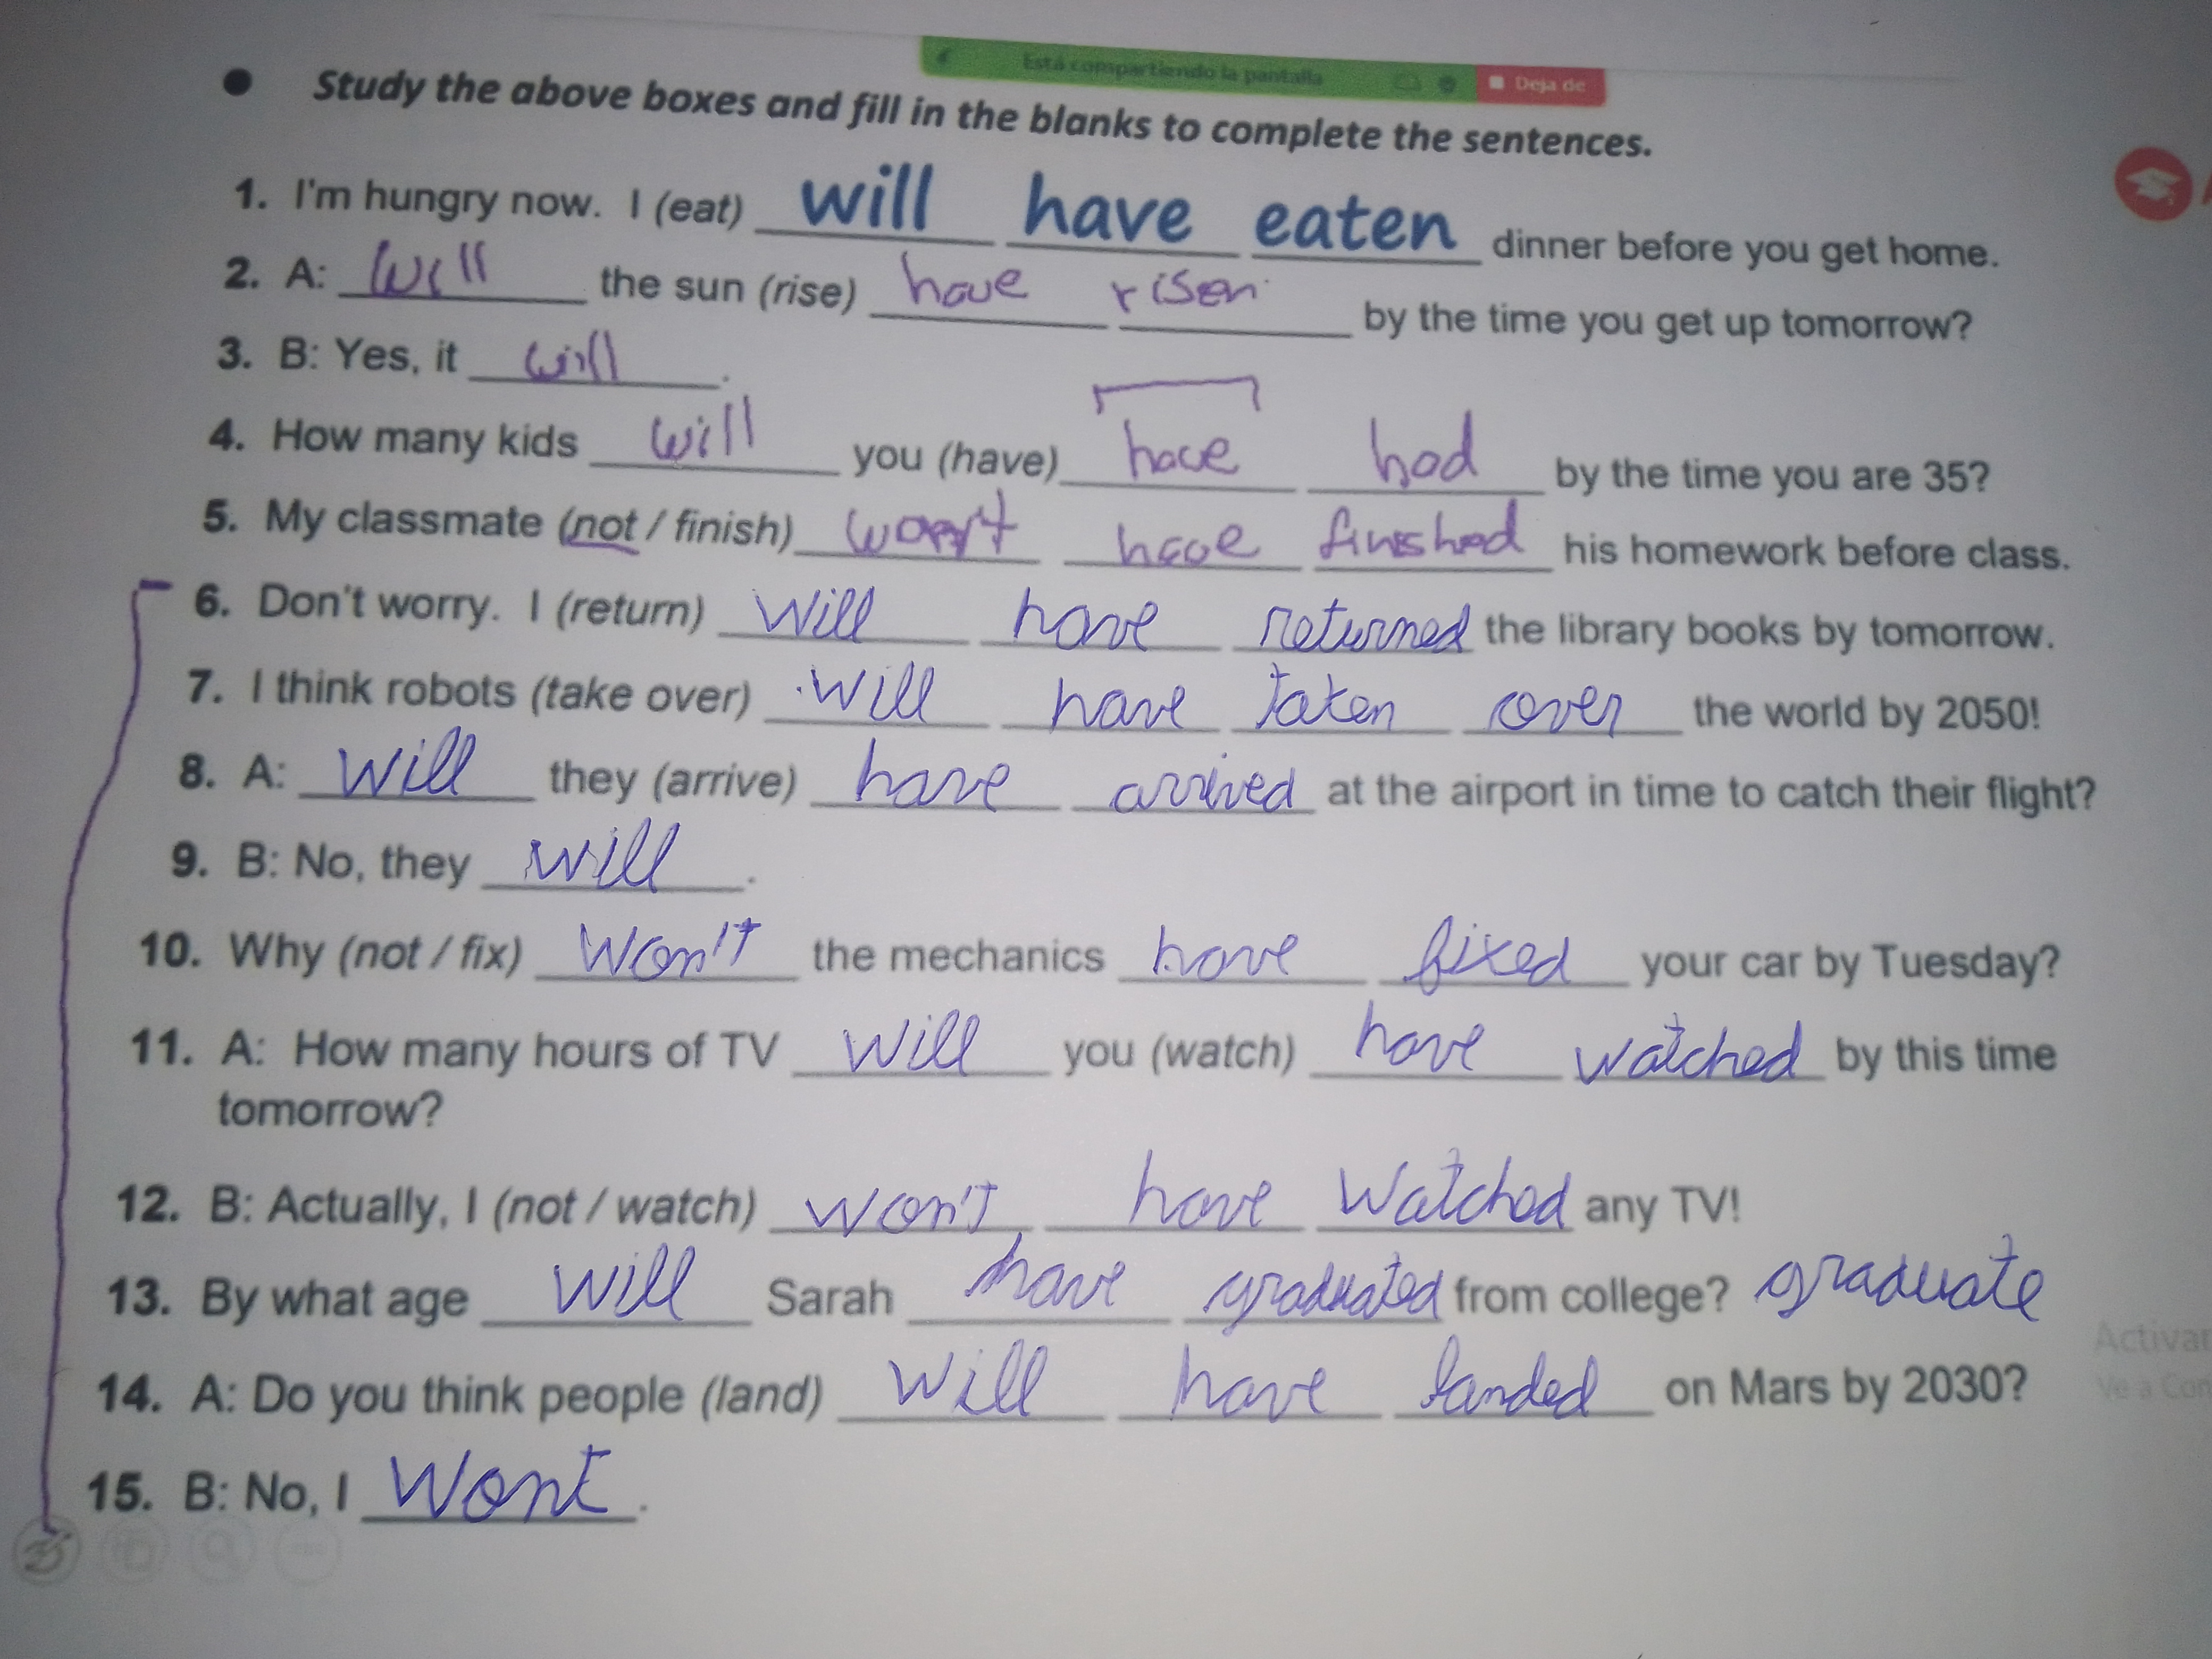 Está compartiendo la pantalla Deja de
● Study the above boxes and fill in the blanks to complete the sentences.
1. I'm hungry now. I (eat) will have eaten dinner before you get home.
2. A: Will the sun (rise) have risen by the time you get up tomorrow?
3. B: Yes, it will.
4. How many kids will you (have) have had by the time you are 35?
5. My classmate (not / finish) won't have finished his homework before class.
6. Don't worry. I (return) will have returned the library books by tomorrow.
7. I think robots (take over) will have taken over the world by 2050!
8. A: Will they (arrive) have arrived at the airport in time to catch their flight?
9. B: No, they will.
10. Why (not / fix) Won't the mechanics have fixed your car by Tuesday?
11. A: How many hours of TV will you (watch) have watched by this time
tomorrow?
12. B: Actually, I (not / watch) won't have watched any TV!
13. By what age will Sarah have graduated from college? graduate
14. A: Do you think people (land) will have landed on Mars by 2030?
15. B: No, I Wont.
Activar
Ve a Con